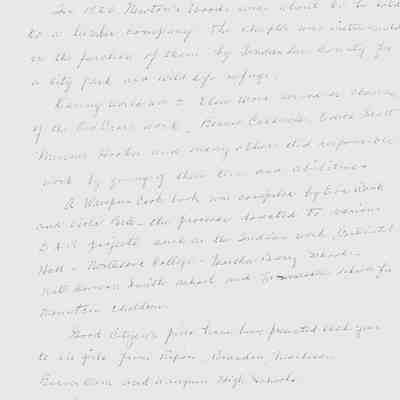 In 1926 Newton's Woods was about to be sold
to a lumber company. The chapter was instrumental
in the purchase of them by Fond du Lac County for
a city park and wild life refuge.
During World War I Clow were in charge
of the Red Cross work, Bessie Caldwell, Scott
Minnie Hooker and many others did responsible
work by giving of their time and abilities
A Waupun Cook book was compiled by Eva Cook
and Viola - the proceeds donated to various
D A R projects such as the Indian work, Continental
Hall - Northland College - Martha Berry School -
Kate Duncan Smith school and Tamassee school for
mountain children.
Good Citizen's pins have been presented each year
to six girls from Ripon, Brandon, Markesan
Beaver Dam and Waupun High Schools.